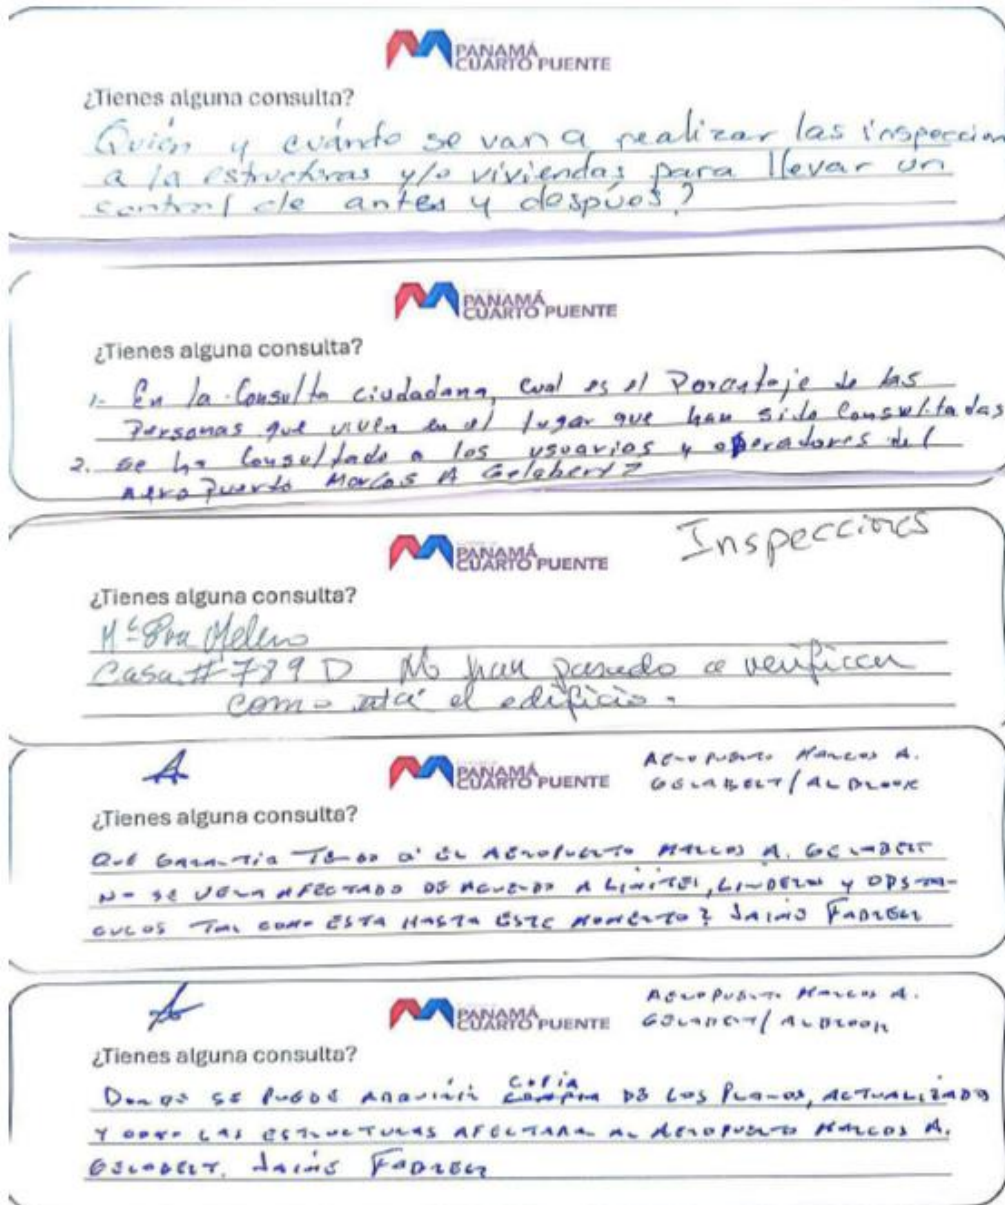 PANAMÁ
CUARTO PUENTE
¿Tienes alguna consulta?
Quién y cuándo se van a realizar las inspeccion
a la estructuras y/o viviendas para llevar un
control de antes y despúes?
PANAMÁ
CUARTO PUENTE
¿Tienes alguna consulta?
1- En la Consulta ciudadana, cual es el Porcentaje de las
Personas que viven en el lugar que han sido Consultadas
2. se ha Consultado a los usuarios y operadores del
aeropuerto Marcos A Gelabert?
Inspecciones
PANAMÁ
CUARTO PUENTE
¿Tienes alguna consulta?
Casa # 789 D No han pasado a verificar
como está el edificio.
AEROPUERTO MARCOS A.
GELABERT/ALBROOK
PANAMÁ
CUARTO PUENTE
¿Tienes alguna consulta?
QUE GARANTIA EL AEROPUERTO MARCOS A. GELABERT
NO SE VERA AFECTADO DE ACUERDO A LIMITES, LINDEROS Y OBSTA-
CULOS TAL COMO ESTA HASTA ESTE MOMENTO? JAIME FABREGA
AEROPUERTO MARCOS A.
GELABERT/ALBROOK
PANAMÁ
CUARTO PUENTE
¿Tienes alguna consulta?
DONDE SE PUEDE ADQUIRIR COPIA DE LOS PLANOS, ACTUALIZADO
Y COMO LAS ESTRUCTURAS AFECTARA AL AEROPUERTO MARCOS A.
GELABERT. JAIME FABREGA